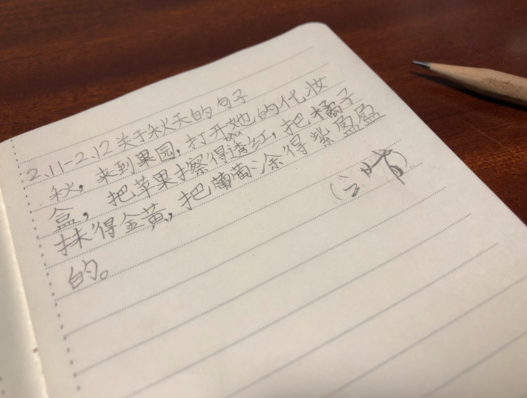 2.11-2.12关于秋天的句子
秋，来到果园，打开她的化妆
盒，把苹果擦得透红，把橘子
抹得金黄，把葡萄涂得紫盈盈
的。